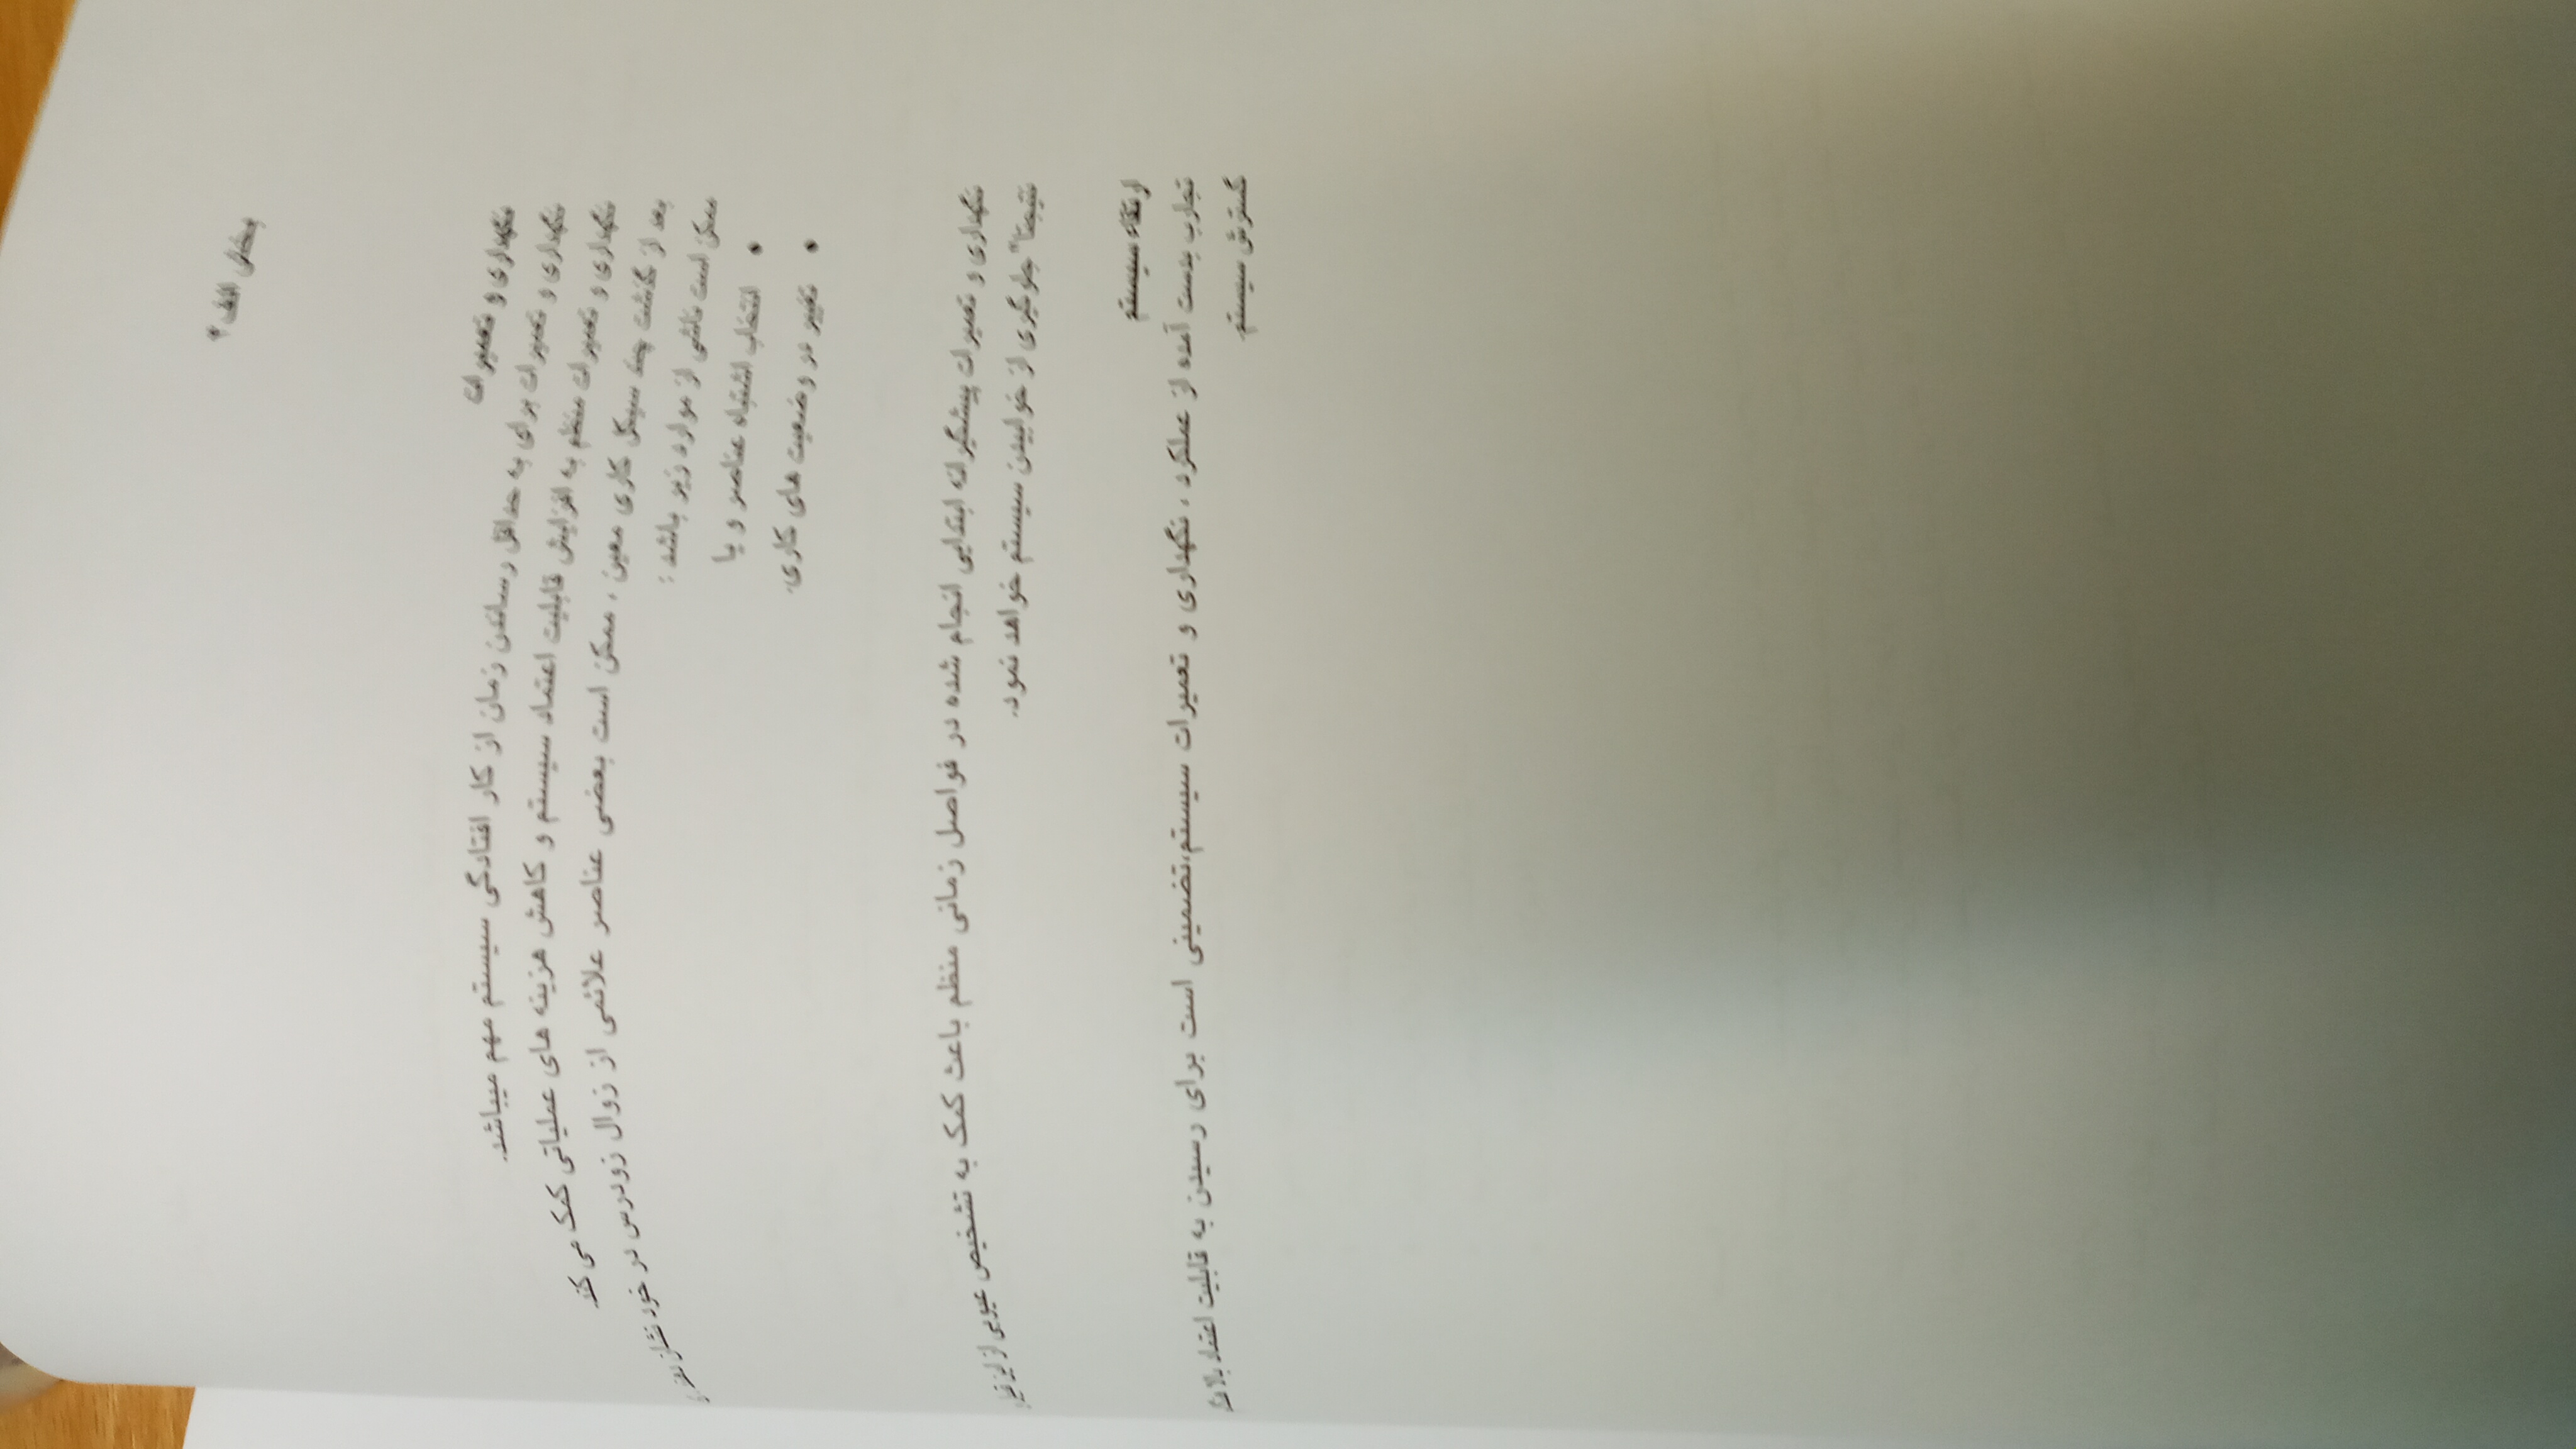 بخش الف ۴
نگهداری و تعمیرات
نگهداری و تعمیرات برای به حداقل رساندن زمان از کار افتادگی سیستم مهم میباشد.
نگهداری و تعمیرات منظم به افزایش قابلیت اعتماد سیستم و کاهش هزینه های عملیاتی کمک می کند.
بعد از گذشت چند سیکل کاری معین ، ممکن است بعضی عناصر علائمی از زوال زودرس در خود نشان دهند
ممکن است ناشی از موارد زیر باشد :
• انتخاب اشتباه عناصر و یا
• تغییر در وضعیت های کاری.
نگهداری و تعمیرات پیشگیرانه ابتدایی انجام شده در فواصل زمانی منظم باعث کمک به تشخیص عیوبی از این قبیل
نتیجتا" جلوگیری از خوابیدن سیستم خواهد نمود.
ارتقاء سیستم
تجارب بدست آمده از عملکرد ، نگهداری و تعمیرات سیستم،تضمینی است برای رسیدن به قابلیت اعتماد بالا
گسترش سیستم.